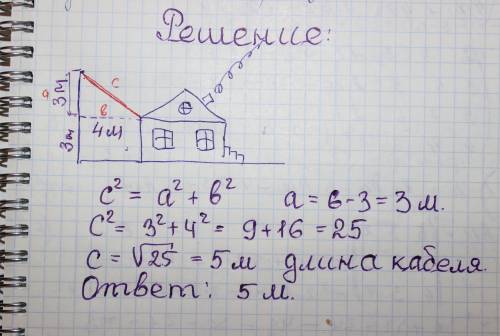 Решение:
a 3м c
в
3м 4м
c² = a² + в² a = 6-3 = 3 м.
c² = 3² + 4² = 9 + 16 = 25
c = √25 = 5 м длина кабеля.
Ответ: 5 м.